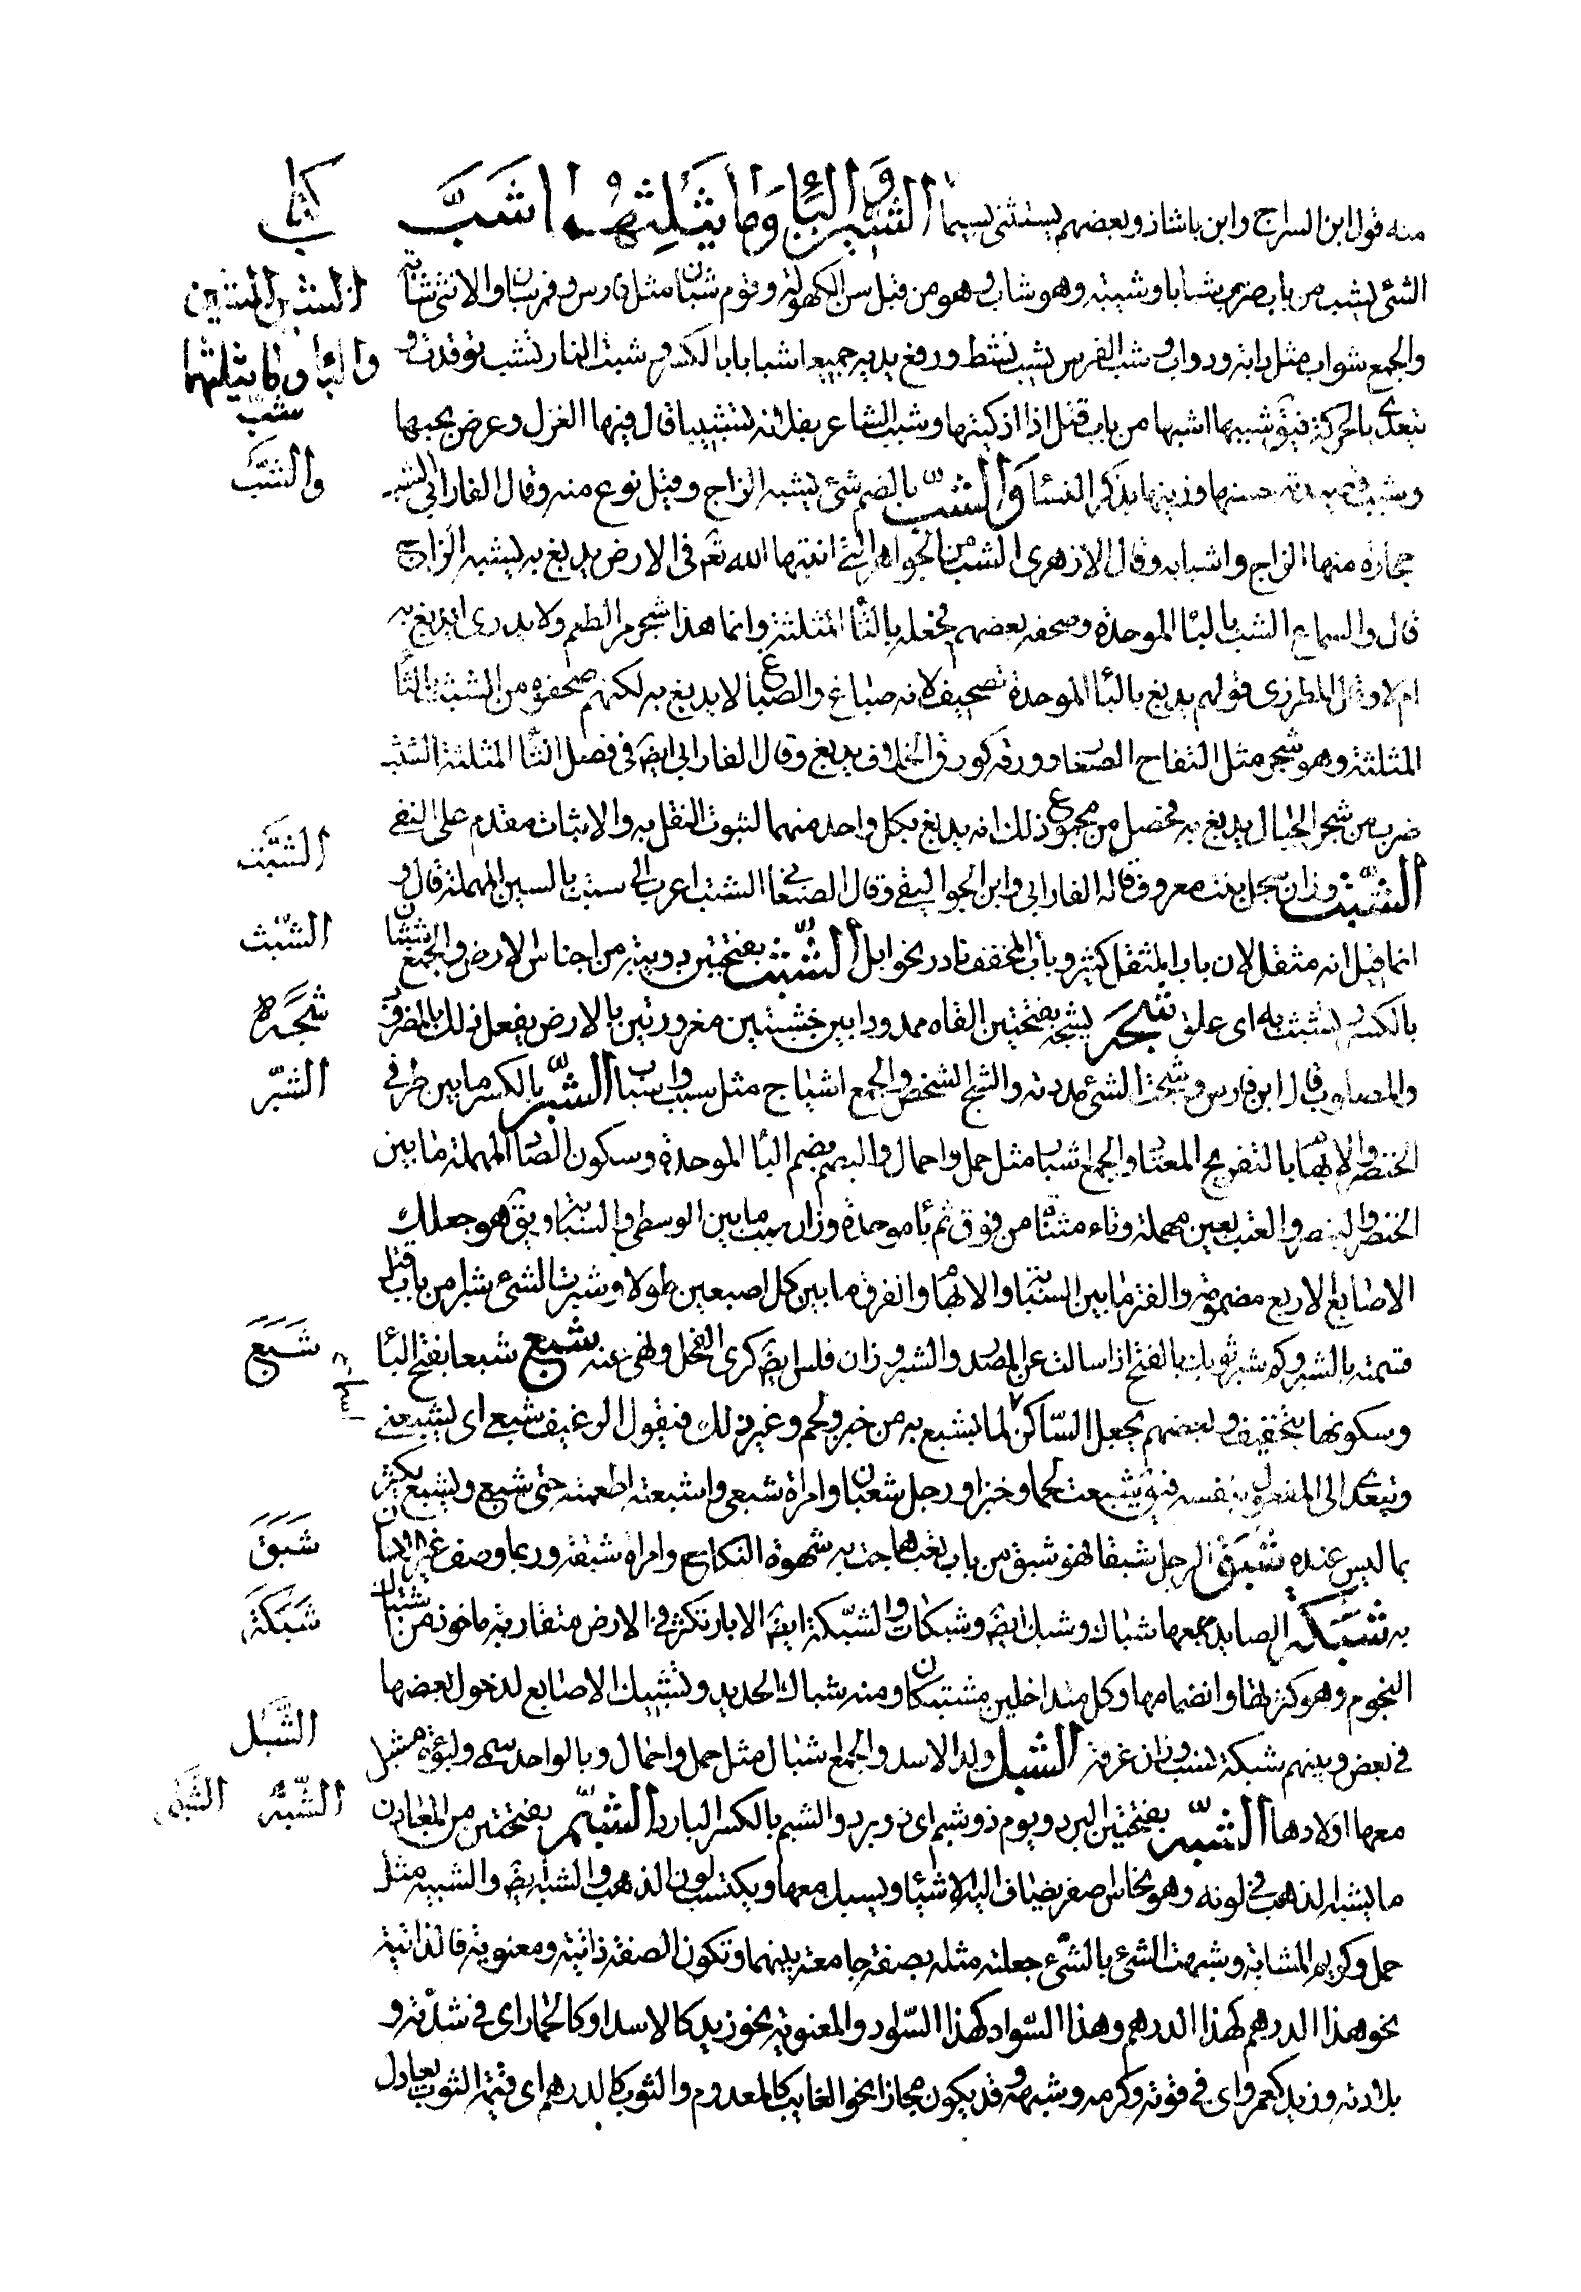 منه قول ابن السراج وابن بابشاذ وبعضهم يستثنى بسيما الشين والباء وما يثلثهما شب
الشئ يشب من باب ضرب شبابا وشبيبه وهو شاب وهو من قبل سن الكهولة وقوم شبان مثل فارس وفرسان والانثى شابة
والجمع شواب مثل دابة ودواب وشب الفرس يشب نشط ورفع يديه جميعا شبابا بالكسر وشبت النار تشب توقدت و
يتعدى بالحركة فيق شببها اشبها من باب قتل اذا اذكيتها وشبب الشاعر بفلانة تشبيبا قال فيها الغزل وعرض بحبها
وشبب قصيدته حسنها وزينها بذكر النساء والشب بالضم شئ يشبه الزاج وقيل نوع منه وقال الفارابى الشب
حجارة منها الزاج واشباهه وقال الازهرى الشب من الجواهر التى انبتها الله تعم فى الارض يدبغ به يشبه الزاج
قال والسماع الشب بالباء الموحدة وصحفه بعضهم فجعله بالثا المثلثة وانما هذا شجر مر الطعم ولا يدرى ايدبغ به
ام لا وقال المطرزى قولهم يدبغ بالباء الموحدة تصحيف لانه صباغ والصباغ لا يدبغ به لكنهم صحفوه من الشث بالثا
المثلثة وهو شجر مثل التفاح الصغار وورقه كورق الخلاف يدبغ وقال الفارابى ايض فى فصل الثا المثلثة الشث
ضرب من شجر الجبال يدبغ به فحصل من مجموع ذلك انه يدبغ بكل واحد منهما لثبوت النقل به والاثبات مقدم على النفى
الشبت وزان سجل نبت معروف قاله الفارابى وابن الجواليقى وقال الصغانى الشبت اعرب الى سبت بالسين المهملة قال و
انما قيل انه مثقل لان باب المثقل كثير وباب المخفف نادر نحو ابل الشبث بفتحتين دويبة من اجناس الارض والجمع شبثان
بالكسر وتشبث به اى علق شبح يشبحه بفتحتين القاه ممدودا بين خشبتين مغرورتين بالارض يفعل ذلك بالمضروب
والمصلوب قال ابن فارس وشبحت الشئ مددته والشبح الشخص والجمع اشباح مثل سبب واسباب الشبر بالكسر ما بين طرفى
الخنصر والابهام بالتفريج المعتاد والجمع اشبار مثل حمل واحمال والبصم بضم البا الموحدة وسكون الصاد المهملة ما بين
الخنصر والبنصر والعتب بعين مهملة وتاء مثناة من فوق ثم باء موحدة وزان سبب ما بين الوسطى والسبابة ويق هو جعلك
الاصابع الاربع مضمومة والفتر ما بين السبابة والابهام والفرق ما بين كل اصبعين طولا وشبرت الشئ شبرا من باب قتل
قسمته بالشبر وكم شبر ثوبك بالفتح اذا سالت عن المصدر والشبر وزان فلس ايض كرى الفحل ونهى عنه شبع شبعا بفتح الباء
وسكونها تخفيف وبعضهم يجعل الساكن لما يشبع به من خبز ولحم وغير ذلك فنقول الرغيف شبعى اى يشبعنى
ويتعدى الى المفعول بنفسه فيق شبعت لحما وخبزا ورجل شبعان وامراة شبعى واشبعته اطعمته حتى شبع وتشبع تكثر
بما ليس عنده شبق الرجل شبقا فهو شبق من باب تعب هاجت به شهوة النكاح وامراة شبقة وربما وصف غير الانسان
به شبكة الصايد جمعها شباك وشبك ايض وشبكات والشبكة ايض الابار تكثر فى الارض متقاربة ماخوذ من اشتباك
النجوم وهو كثرتها وانضمامها وكل متداخلين مشتبكان ومنه شباك الحديد وتشبيك الاصابع لدخول بعضها
فى بعض وبينهم شبكة نسب وزان غرفة الشبل ولد الاسد والجمع اشبال مثل حمل واحمال وبالواحد سمى ولبؤة مشبل
معها اولادها الشبم بفتحتين البرد ويوم ذو شبم اى ذو برد والشبم بالكسر البارد الشبه بفتحتين من المعادن
ما يشبه الذهب فى لونه وهو نحاس اصفر يضاف اليه الاشيا ويسبك معها ويكتسب لون الذهب والشبه ايض والشبيه مثل
حمل وكريم المشابه وشبهت الشئ بالشئ جعلته مثله بصفة جامعة بينهما وتكون الصفة ذاتية ومعنوية فالذاتية
نحو هذا الدرهم كهذا الدرهم وهذا السواد كهذا السواد والمعنوية نحو زيد كالاسد او كالحمار اى فى شدته و
بلادته وزيد كعمرو اى فى قوته وكرمه وشبهه وقد يكون مجازا نحو الغايب كالمعدوم والثوب كالدرهم اى قيمة الثوب تعادل
كتاب
الشين
والباء وما يثلثهما
شب
والشب
الشبت
الشبث
شبحه
الشبر
شبع
شبق
شبكة
الشبل
الشبه الشبم